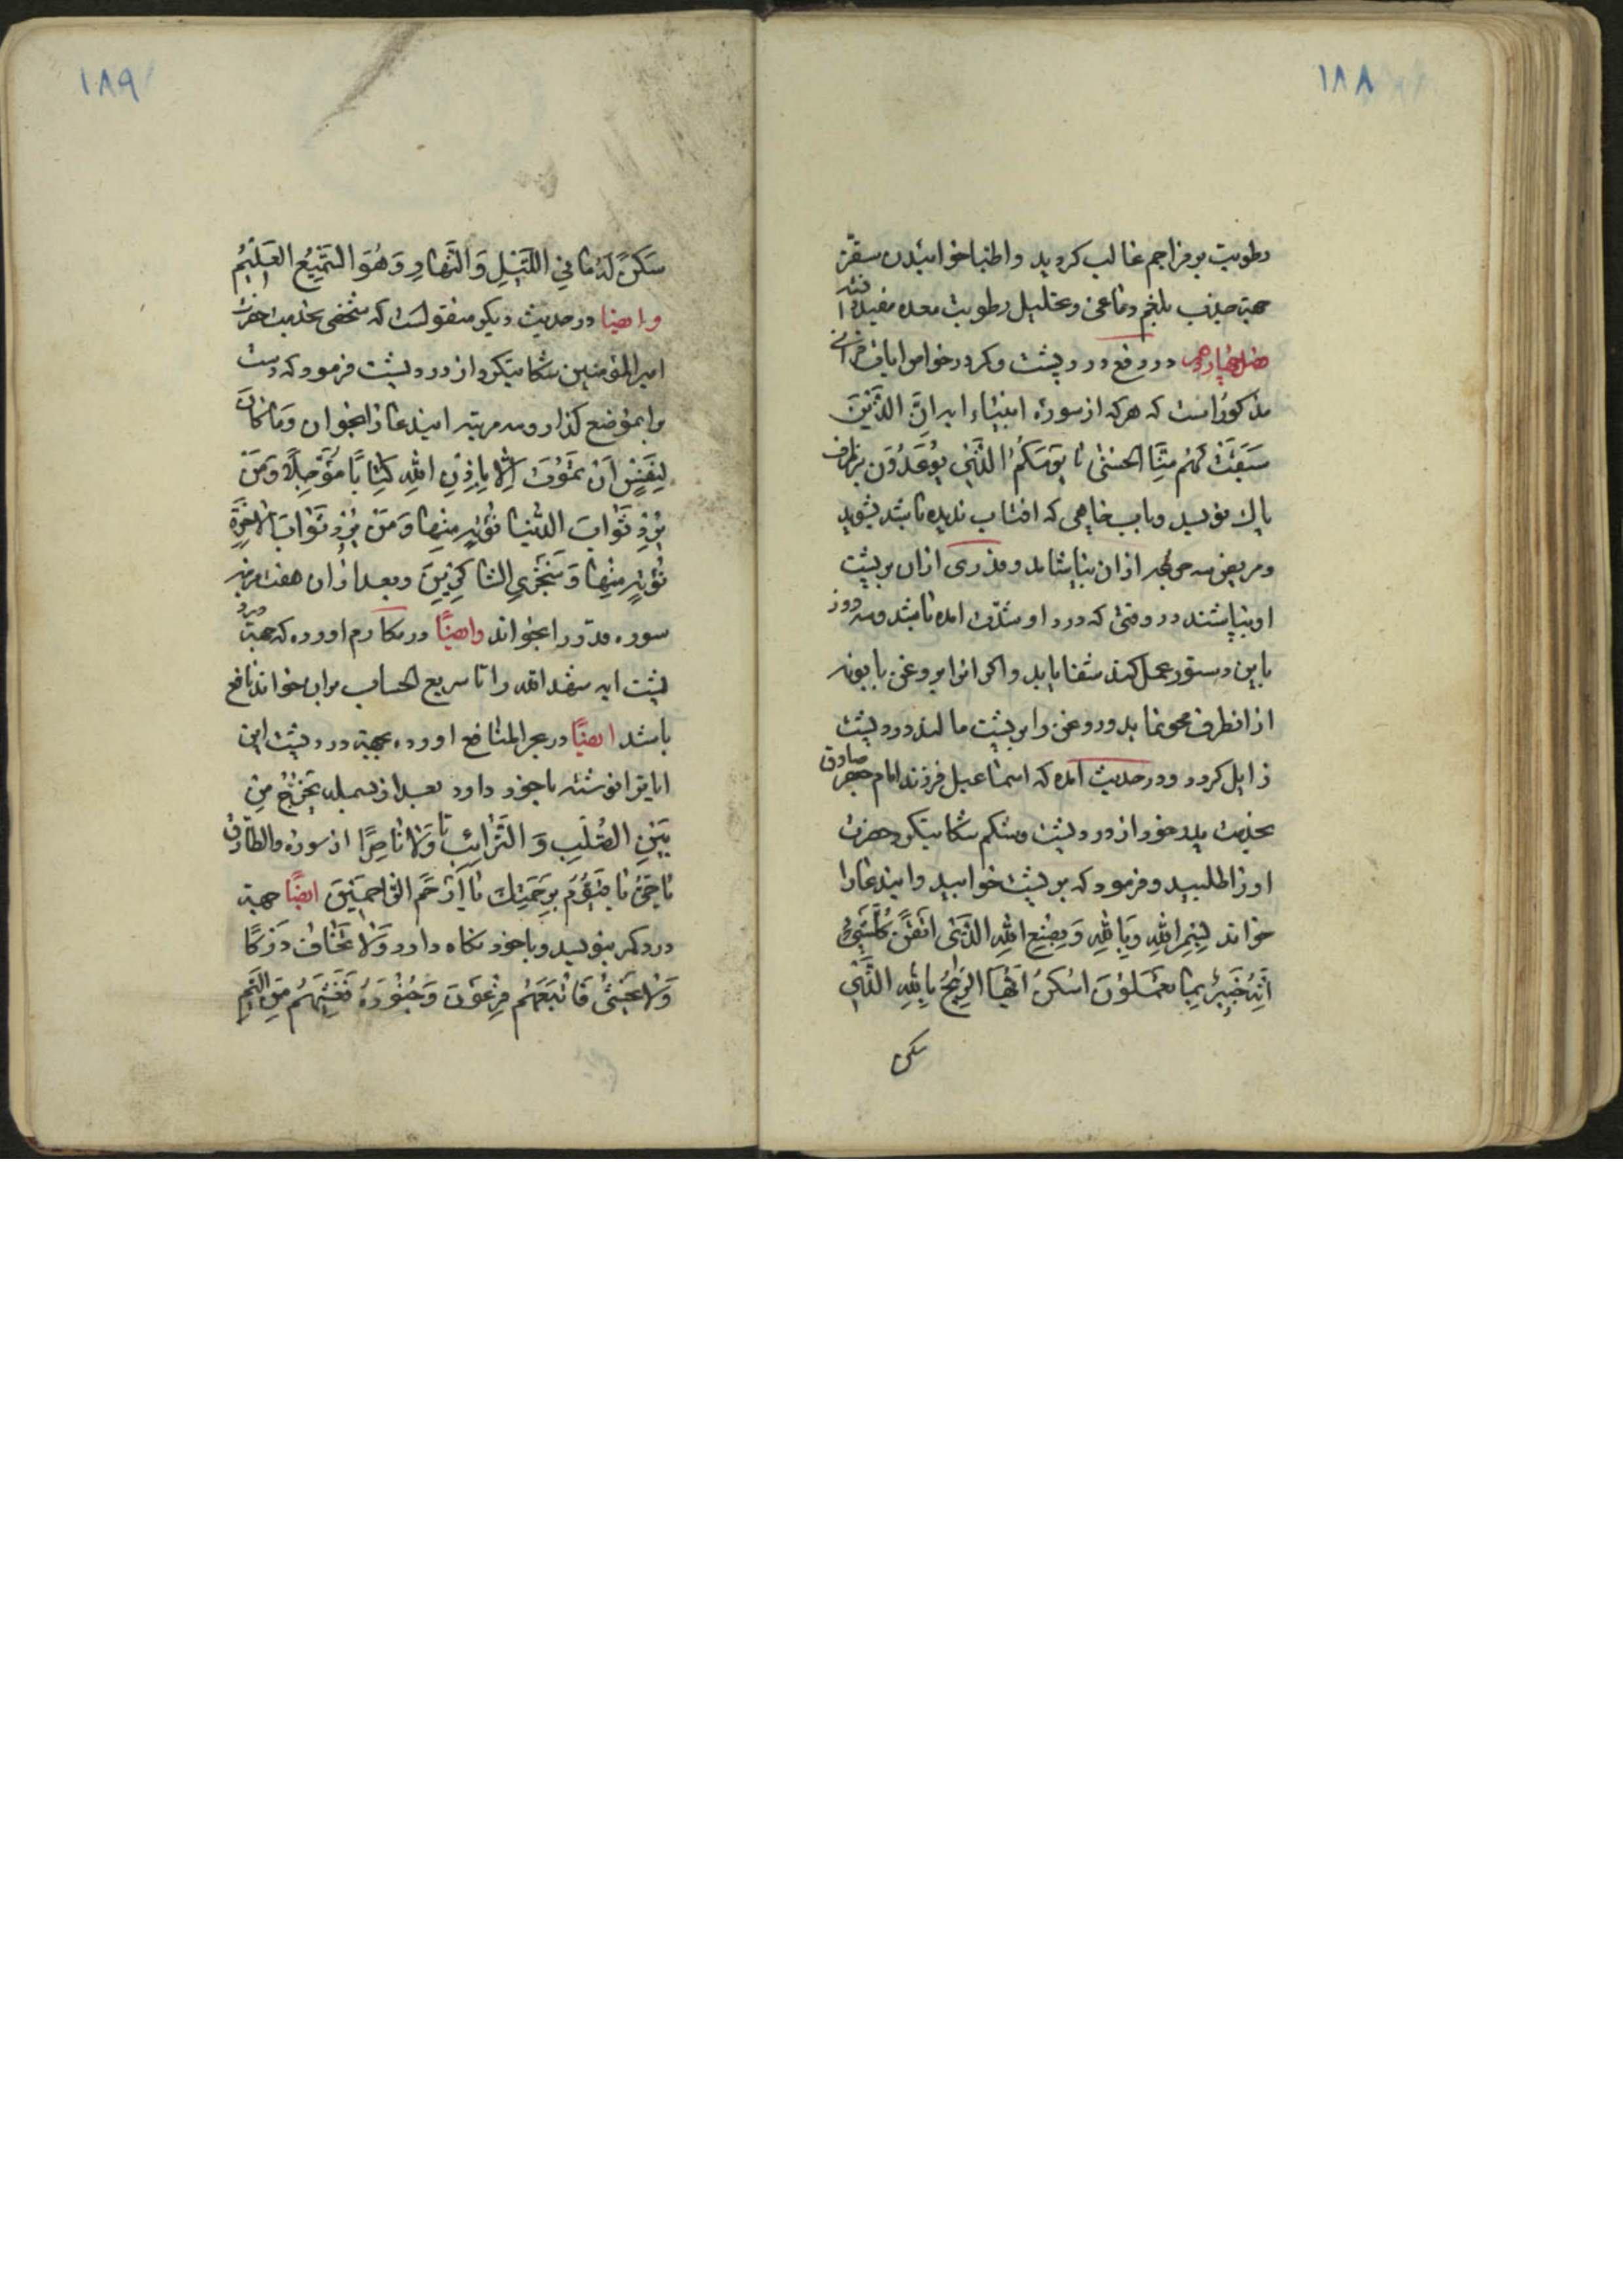 ۱۸۸
رطوبت بر مزاجم غالب کردید و اطبا خوابیدن سقز
جهة جذب بلغم دماغی و تحلیل رطوبت معده مفید دانسته
فصل چهاردهم در رفع درد پشت و کمر در خواص ایات قرآنی
مذکور است که هرکه از سوره انبیاء ایه اِنَّ الَّذینَ
سَبَقَتْ لَهُمْ مِنَّا الحُسْنیٰ تا یَومُکُمُ الَّذی تُوعَدُونَ بر ظرف
پاک نویسد و باب چاهی که افتاب ندیده باشد بشوید
و مریض سه جرعه از ان بیاشامد و قدری ازان بر پشت
او بپاشند در وقتی که درد او بشدت امده باشد و سه روز
باین دستور عمل کند شفا یابد و اکر انرا بروغن بابونه
از انظرف محو نماید و روغن را بر پشت مالد درد پشت
زایل کردد و در حدیث امده که اسماعیل فرزند امام جعفر صادق
بخدمت پدر خود از درد پشت و شکم شکایت کرد حضرت
او را طلبید و فرمود که بر پشت خوابید و ایندعا را
خواند بِسْمِ اللهِ وَ بِاللهِ وَ بِصُنْعِ اللهِ الَّذی اَتْقَنَ کُلَّ شَیْءٍ
اِنَّهُ خَبیرٌ بِمٰا تَعْمَلُونَ اُسْکُنْ اَیُّهَا الرّیحُ بِاللهِ الَّذی
سکن
۱۸۹
سَکَنَ لَهُ مٰا فِی اللَّیْلِ وَ النَّهٰارِ وَ هُوَ السَّمیعُ العَلیمُ
و ایضا در حدیث دیکر منقولست که شخصی بخدمت حضرت
امیر المؤمنین شکایت کرد از درد پشت فرمود که دست
را بموضع کذار و سه مرتبه ایندعا را بخوان وَ مٰا کٰانَ
لِنَفْسٍ اَنْ تَمُوتَ اِلّٰا بِاِذْنِ اللهِ کِتٰابًا مُؤَجَّلًا وَ مَنْ
یُرِدْ ثَوٰابَ الدُّنْیٰا نُؤْتِهِ مِنْهٰا وَ مَنْ یُرِدْ ثَوٰابَ الاٰخِرَةِ
نُؤْتِهِ مِنْهٰا وَ سَنَجْزِی الشّٰاکِرینَ و بعد ازان هفت مرتبه
سوره قدر را بخواند و ایضًا در مکارم اورده که جهة درد
پشت ایه شهد الله را تا سریع الحساب بران خواند نافع
باشد ایضًا در بحر المنافع اورده بجهة درد پشت این
ایاترا نوشته باخود دارد بعد از بسمله یَخْرُجُ مِنْ
بَیْنِ الصُّلْبِ وَ التَّرٰائِبِ تا وَ لٰا نٰاصِرًا از سوره والطارق
یٰا حَیُّ یٰا قَیُّومُ بِرَحْمَتِكَ یٰا اَرْحَمَ الرّٰاحِمینَ ایضًا جهة
درد کمر بنویسد و باخود نکاه دارد وَ لٰا تَخٰافُ دَرَکًا
وَ لٰا تَخْشیٰ فَاَتْبَعَهُمْ فِرْعَوْنَ وَ جُنُودَهُ فَغَشِیَهُمْ مِنَ الْیَمِّ